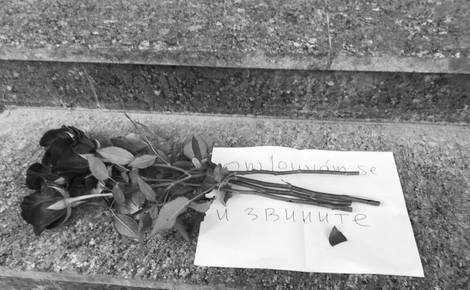 omlouvám se
извините